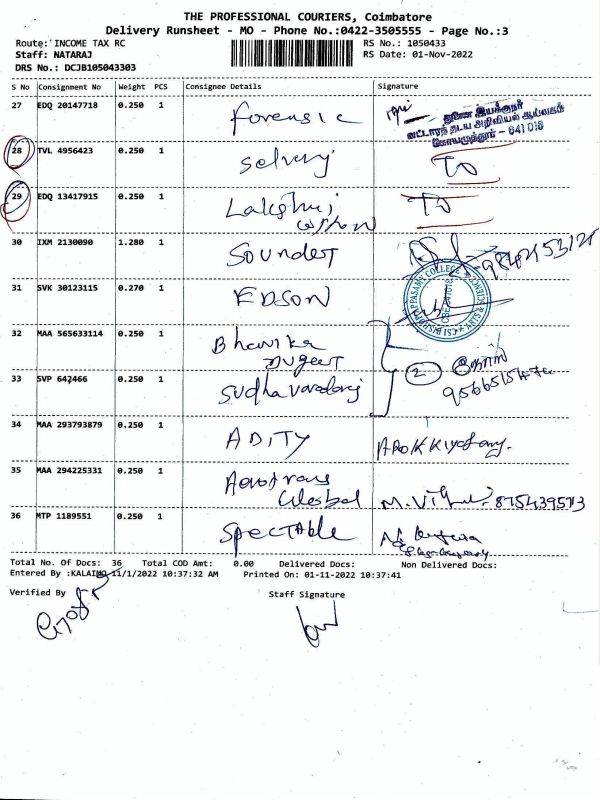 THE PROFESSIONAL COURIERS, Coimbatore
Delivery Runsheet - MO - Phone No.:0422-3505555 - Page No.:3
Route: INCOME TAX RC
RS No.: 1050433
Staff: NATARAJ
RS Date: 01-Nov-2022
DRS No.: DCJB105043303
S No Consignment No Weight PCS Consignee Details Signature
27 EDQ 20147718 0.250 1 Forensic
துணை இயக்குநர்
வட்டாரத் தடய அறிவியல் ஆய்வகம்
கோயமுத்தூர் - 641 018
28 TVL 4956423 0.250 1 Selvaraj
29 EDQ 13417915 0.250 1 Lakshmi
30 IXM 2130090 1.280 1
31 SVK 30123115 0.270 1 EDSON
32 MAA 565633114 0.250 1 Bhavika
33 SVP 642466 0.250 1 Sudha Varadaraj
2
34 MAA 293793879 0.250 1 ADITY
35 MAA 294225331 0.250 1
36 MTP 1189551 0.250 1 Spectable
Total No. Of Docs: 36 Total COD Amt: 0.00 Delivered Docs: Non Delivered Docs:
Entered By :KALAIMO 11/1/2022 10:37:32 AM Printed On: 01-11-2022 10:37:41
Verified By Staff Signature